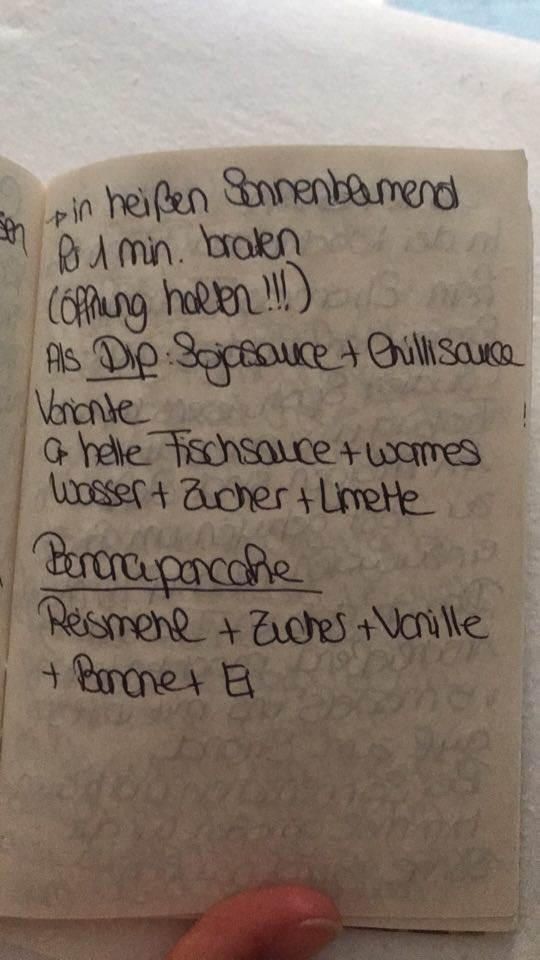 sen
→ in heißen Sonnenblumenöl
für 1 min. braten
(Öffnung halten!!!)
Als Dip: Sojasauce + Chillisauce
Variante
↳ helle Fischsauce + warmes
Wasser + Zucker + Limette
Bananapancake
Reismehl + Zucker + Vanille
+ Banane + Ei